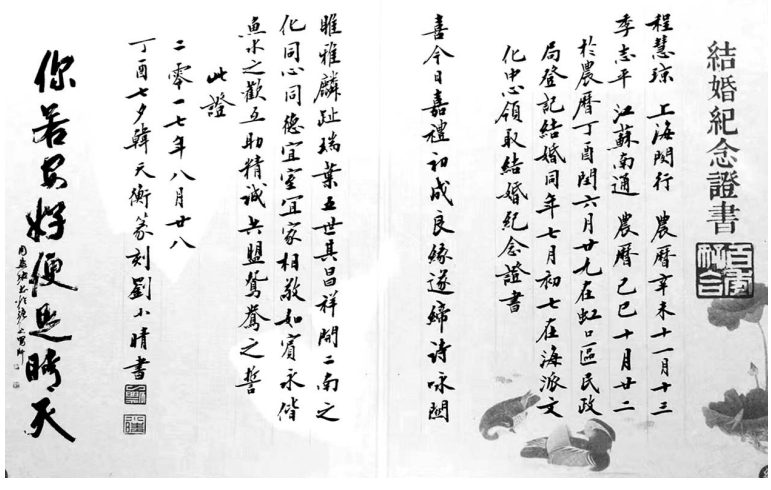 結婚紀念證書
百年
好合
程慧琼 上海閔行 農曆辛未十一月十三
季志平 江蘇南通 農曆己巳十月廿二
於農曆丁酉閏六月廿九在虹口區民政
局登記結婚同年七月初七在海派文
化中心領取結婚紀念證書
喜今日嘉禮初成良緣遂締詩咏關
雎雅麟趾瑞葉五世其昌祥開二南之
化同心同德宜室宜家相敬如賓永偕
魚水之歡互助精誠共盟鴛鴦之誓
此證
二零一七年八月廿八
丁酉七夕韓天衡篆刻劉小晴書
你若安好便是晴天